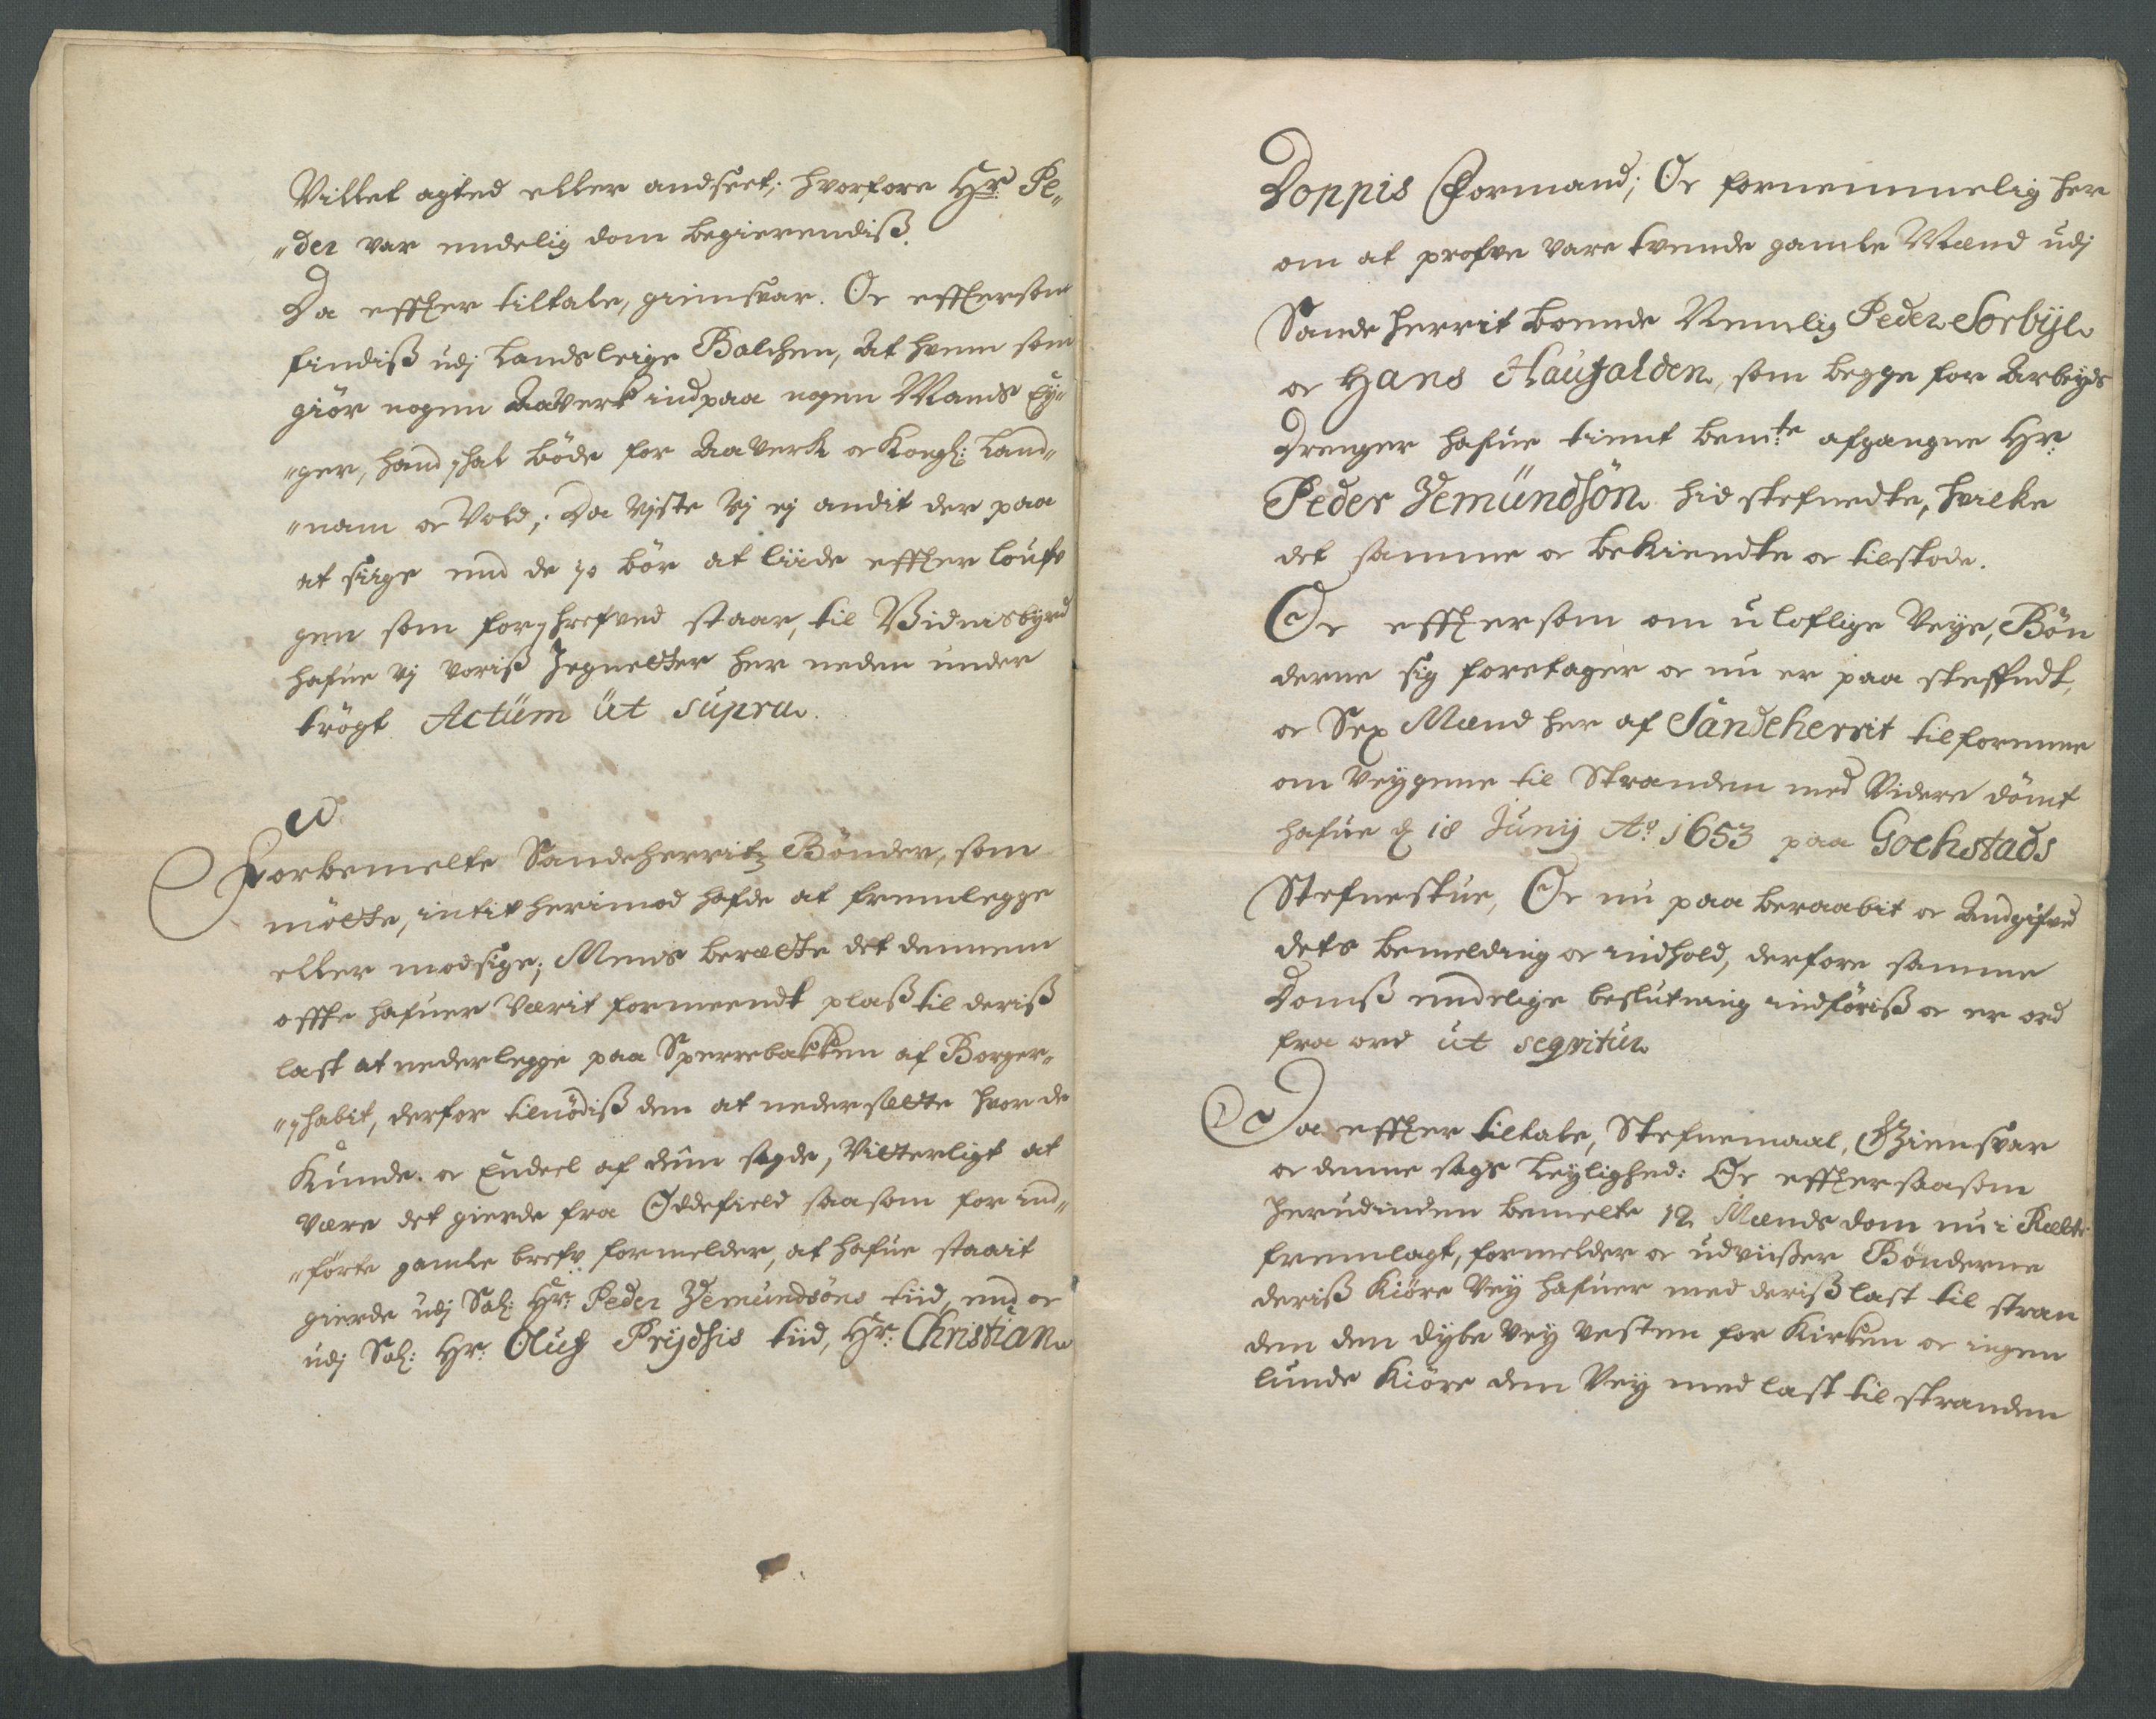 Villet agted eller andseet; hvorfore Hr: Pe„
„der var endelig dom begierendiß.
Da effter tiltale, giensvar. Oc effterson
findiß udj Landsleige Balchen, At hvem som
giör nogen Aaverk ind paa nogen Mands Ey„
„ger, hand skal böde for Aaverk oc Kongl: Land„
„nam oc Vold; Da viste vj ej andit der paa
at sige end de jo bör at liide effter loufv
gen som forskrefved staar, til Vidnisbyrd
hafue vj voriß Zegnetter her neden under
trögt Actüm üt supra.
Forbemelte Sandeherritz Bönder, som
mötte, intit herimod hafde at fremlegge
eller modsige; Mens berette det dennem
offte hafuer værit formeendt plaß til deriß
last at nederlegge paa Sperrebakken af Borger„
„skabit, derfor tilnödiß dem at nedersætte hvor de
Kunde. oc Endeel af dem sagde, Vitterligt at
være det gierde fra Oddefield saasom for ind„
„förte gamle brefv formelder, at hafue staait
gierde udj Sal: Hr: Peder Zemundsöns tiid, end oc
udj Sal: Hr: Oluf Prydsis tiid, Hr: Christian
Doppis Formand; Oc fornemmelig her
om at profve vare tvende gamle Mænd udj
Sandeherrit boende Nemlig Peder Sorbÿe
oc Hans Haufalden, som begge for Arbeyds
Drenger hafue tient bemte afgangne Hr:
Peder Zemündsön hid stefnedte, hvilke
det samme oc bekiendte oc tilstode.
Oc effter som om uloflige Veye, Bön
derne sig foretager oc nu er paa steffndt,
oc Sex Mænd her af Sandeherrit tilforene
om Veygene til Stranden med Videre dömt
hafue d 18 Junij Ao 1653 paa Gochstads
Stefnestue, Oc nu paa beraabit oc Andgifved
dets bemelding oc indhold, derfore samme
Domß endelige beslutning indföriß oc er ord
fra ord üt seqvitur
Da effter tiltale, Stefnemaal, Giensvar
oc denne sags Leylighed: Oc effter saasom
herudinden bemelte 12 Mænds dom nu i Rætte
fremlagt, formelder oc udviißer Bönderne
deriß Kiöre Vey hafuer med deriß last til stran
den den dybe Vey vesten for Kirken oc ingen
lunde Kiöre dem Vey med last til stranden